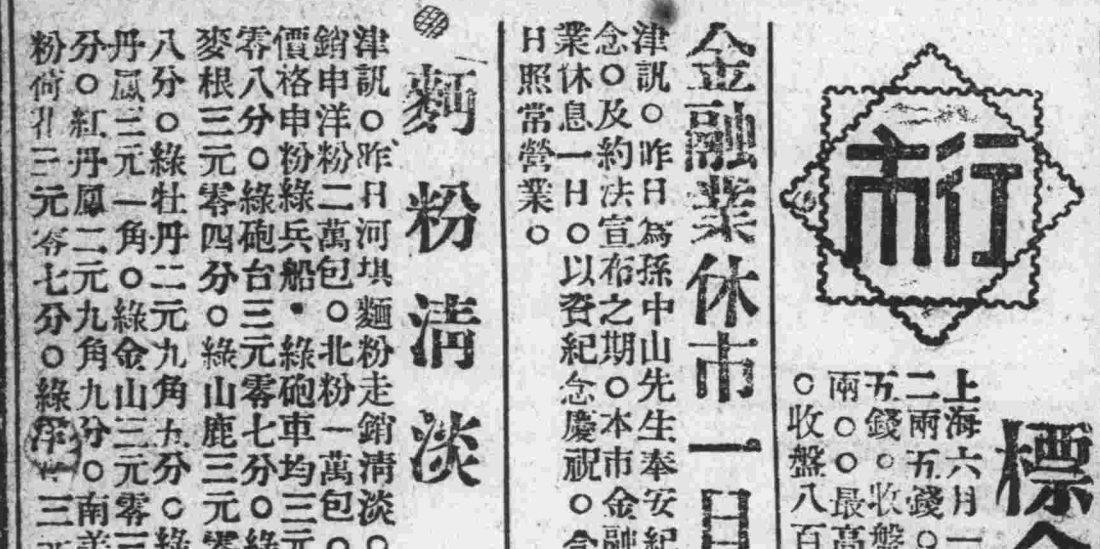 標金
行市
上海六月一
二兩五錢○
五錢○收盤
兩○○最高
○收盤八百
金融業休市一日
津訊○昨日為孫中山先生奉安紀
念○及約法宣布之期○本市金融
業休息一日○以資紀念慶祝○今
日照常營業○
麵粉清淡
津訊○昨日河埧麵粉走銷清淡○
銷申洋粉二萬包○北粉一萬包○
價格申粉綠兵船•綠砲車均三元
零八分○綠砲台三元零七分○綠
麥根三元零四分○綠山鹿三元零
八分○綠牡丹二元九角五分○綠
丹鳳三元一角○綠金山三元零三
分○紅丹鳳二元九角九分○南美
粉荷花三元零七分○綠 三元